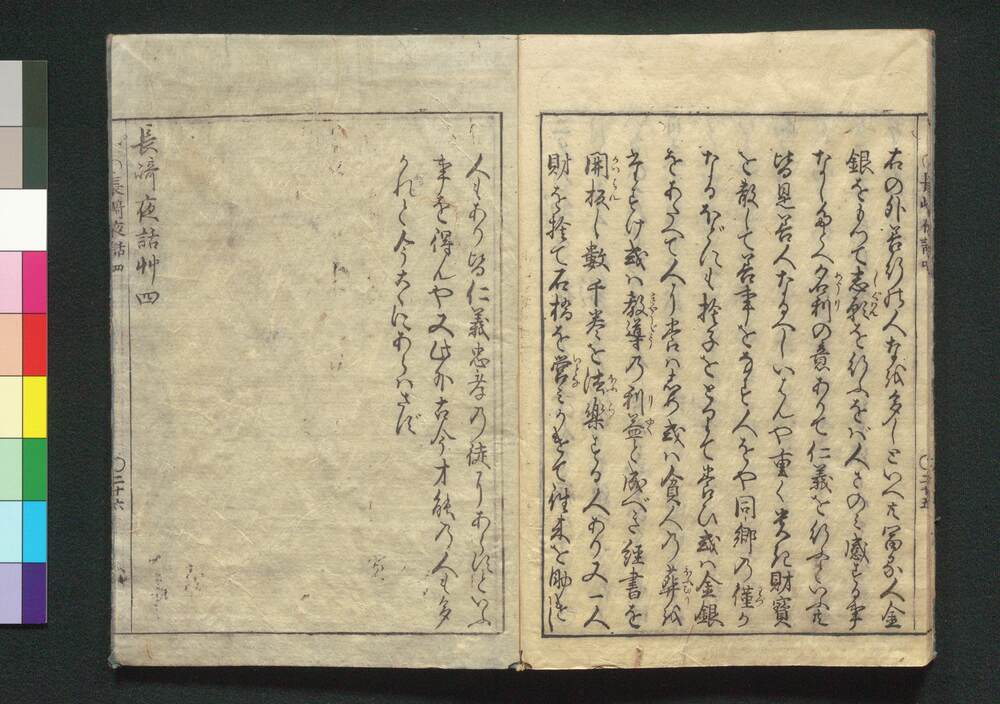 右の外善行の人なを多しといへ共冨る人金
銀をもつて志願を行ふをバ人さのミ感ぜる事
なしたとへ名利の意ありて仁義を行ふといへ共
皆是善人なるべしいはんや重く貴き財寶
を散して善事をなす人をや同郷の僅か
なるわざにも捨子をとりて養ひ或ハ金銀
をあたへて人に養ハしめ或ハ貪人の葬を
たすけ或ハ教導の利益と成べき経書を
開板し數千巻を法樂する人あり又一人
財を捨て石橋を営ミかけて往来を助けし
人もあり皆仁義忠孝の徒にあらずといふ
事を得んや又此外古今才能の人も多
かれと今こゝにあらハさず
長﨑夜話艸四
長﨑夜話四
〇二十六
〇二十五